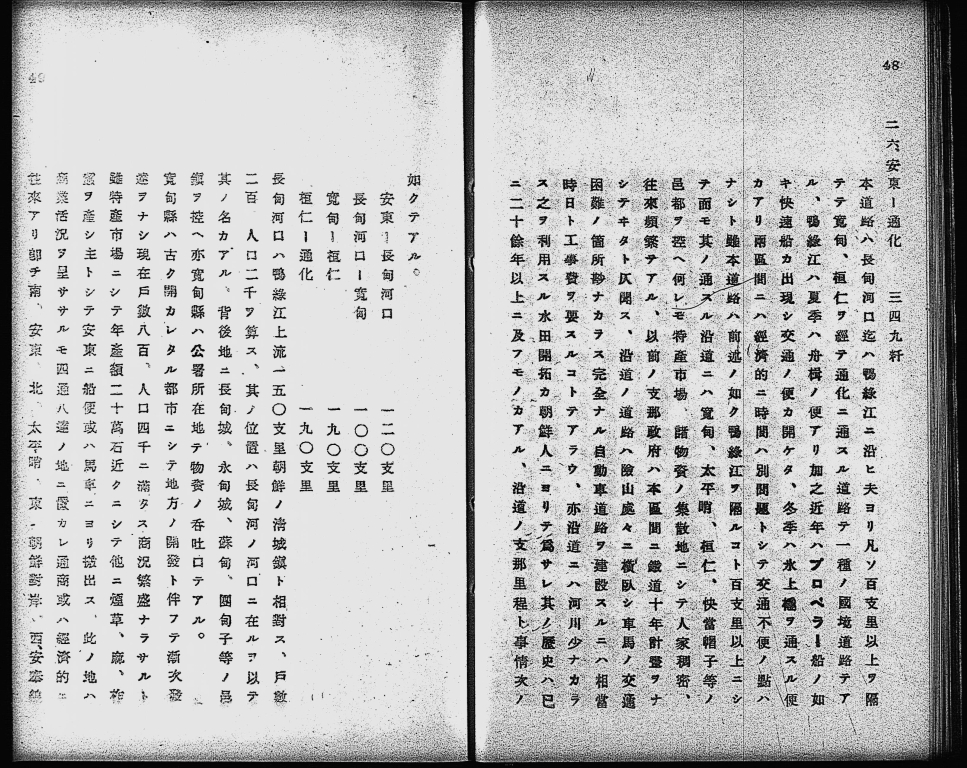 48
二六、安東ー通化　三四九粁
本道路ハ長甸河口迄ハ鴨綠江ニ沿ヒ夫ヨリ凡ソ百支里以上ヲ隔
テテ寬甸、桓仁ヲ經テ通化ニ通スル道路テ一種ノ國境道路テア
ル、鴨綠江ハ夏季ハ舟楫ノ便アリ加之近年ハプロペラー船ノ如
キ快速船カ出現シ交通ノ便カ開ケタ、冬季ハ氷上橇ヲ通スル便
カアリ兩區間ニハ經濟的ニ時間ハ別問題トシテ交通不便ノ點ハ
ナシト雖本道路ハ前述ノ如ク鴨綠江ヲ隔ルコト百支里以上ニシ
テ而モ其ノ通スル沿道ニハ寬甸、太平哨、桓仁、快當帽子等ノ
邑都ヲ控ヘ何レモ特產市場、諸物資ノ集散地ニシテ人家稠密、
往來頻繁テアル、以前ノ支那政府ハ本區間ニ鐵道十年計畫ヲナ
シテキタト仄聞ス、沿道ノ道路ハ險山處々ニ橫臥シ車馬ノ交通
困難ノ箇所尠ナカラス完全ナル自動車道路ヲ建設スルニハ相當
時日ト工事費ヲ要スルコトテアラウ、亦沿道ニハ河川少ナカラ
ス之ヲ利用スル水田開拓カ朝鮮人ニヨリテ爲サレ其ノ歷史ハ已
ニ二十餘年以上ニ及フモノカアル、沿道ノ支那里程ト事情次ノ
49
如クテアル。
安東ー長甸河口　一二〇支里
長甸河口ー寬甸　一〇〇支里
寬甸ー桓仁　一九〇支里
桓仁ー通化　一九〇支里
長甸河口ハ鴨綠江上流一五〇支里朝鮮ノ淸城鎭ト相對ス、戶數
二百、人口二千ヲ算ス、其ノ位置ハ長甸河ノ河口ニ在ルヲ以テ
其ノ名カアル。背後地ニ長甸城、永甸城、蘇甸、團甸子等ノ邑
鎭ヲ控ヘ亦寬甸縣ハ公署所在地テ物資ノ呑吐口テアル。
寬甸縣ハ古ク開カレタル都市ニシテ地方ノ開發ト伴フテ漸次發
達ヲナシ現在戶數八百、人口四千ニ滿タス商況繁盛ナラサルト
雖特產市場ニシテ年產額二十萬石近クニシテ他ニ煙草、麻、柞
蠶ヲ產シ主トシテ安東ニ船便或ハ馬車ニヨリ搬出ス、此ノ地ハ
商業活況ヲ呈ササルモ四通八達ノ地ニ置カレ通商或ハ經濟的ニ
往來アリ卽チ南、安東、北、太平哨、東、朝鮮對岸、西、安奉線